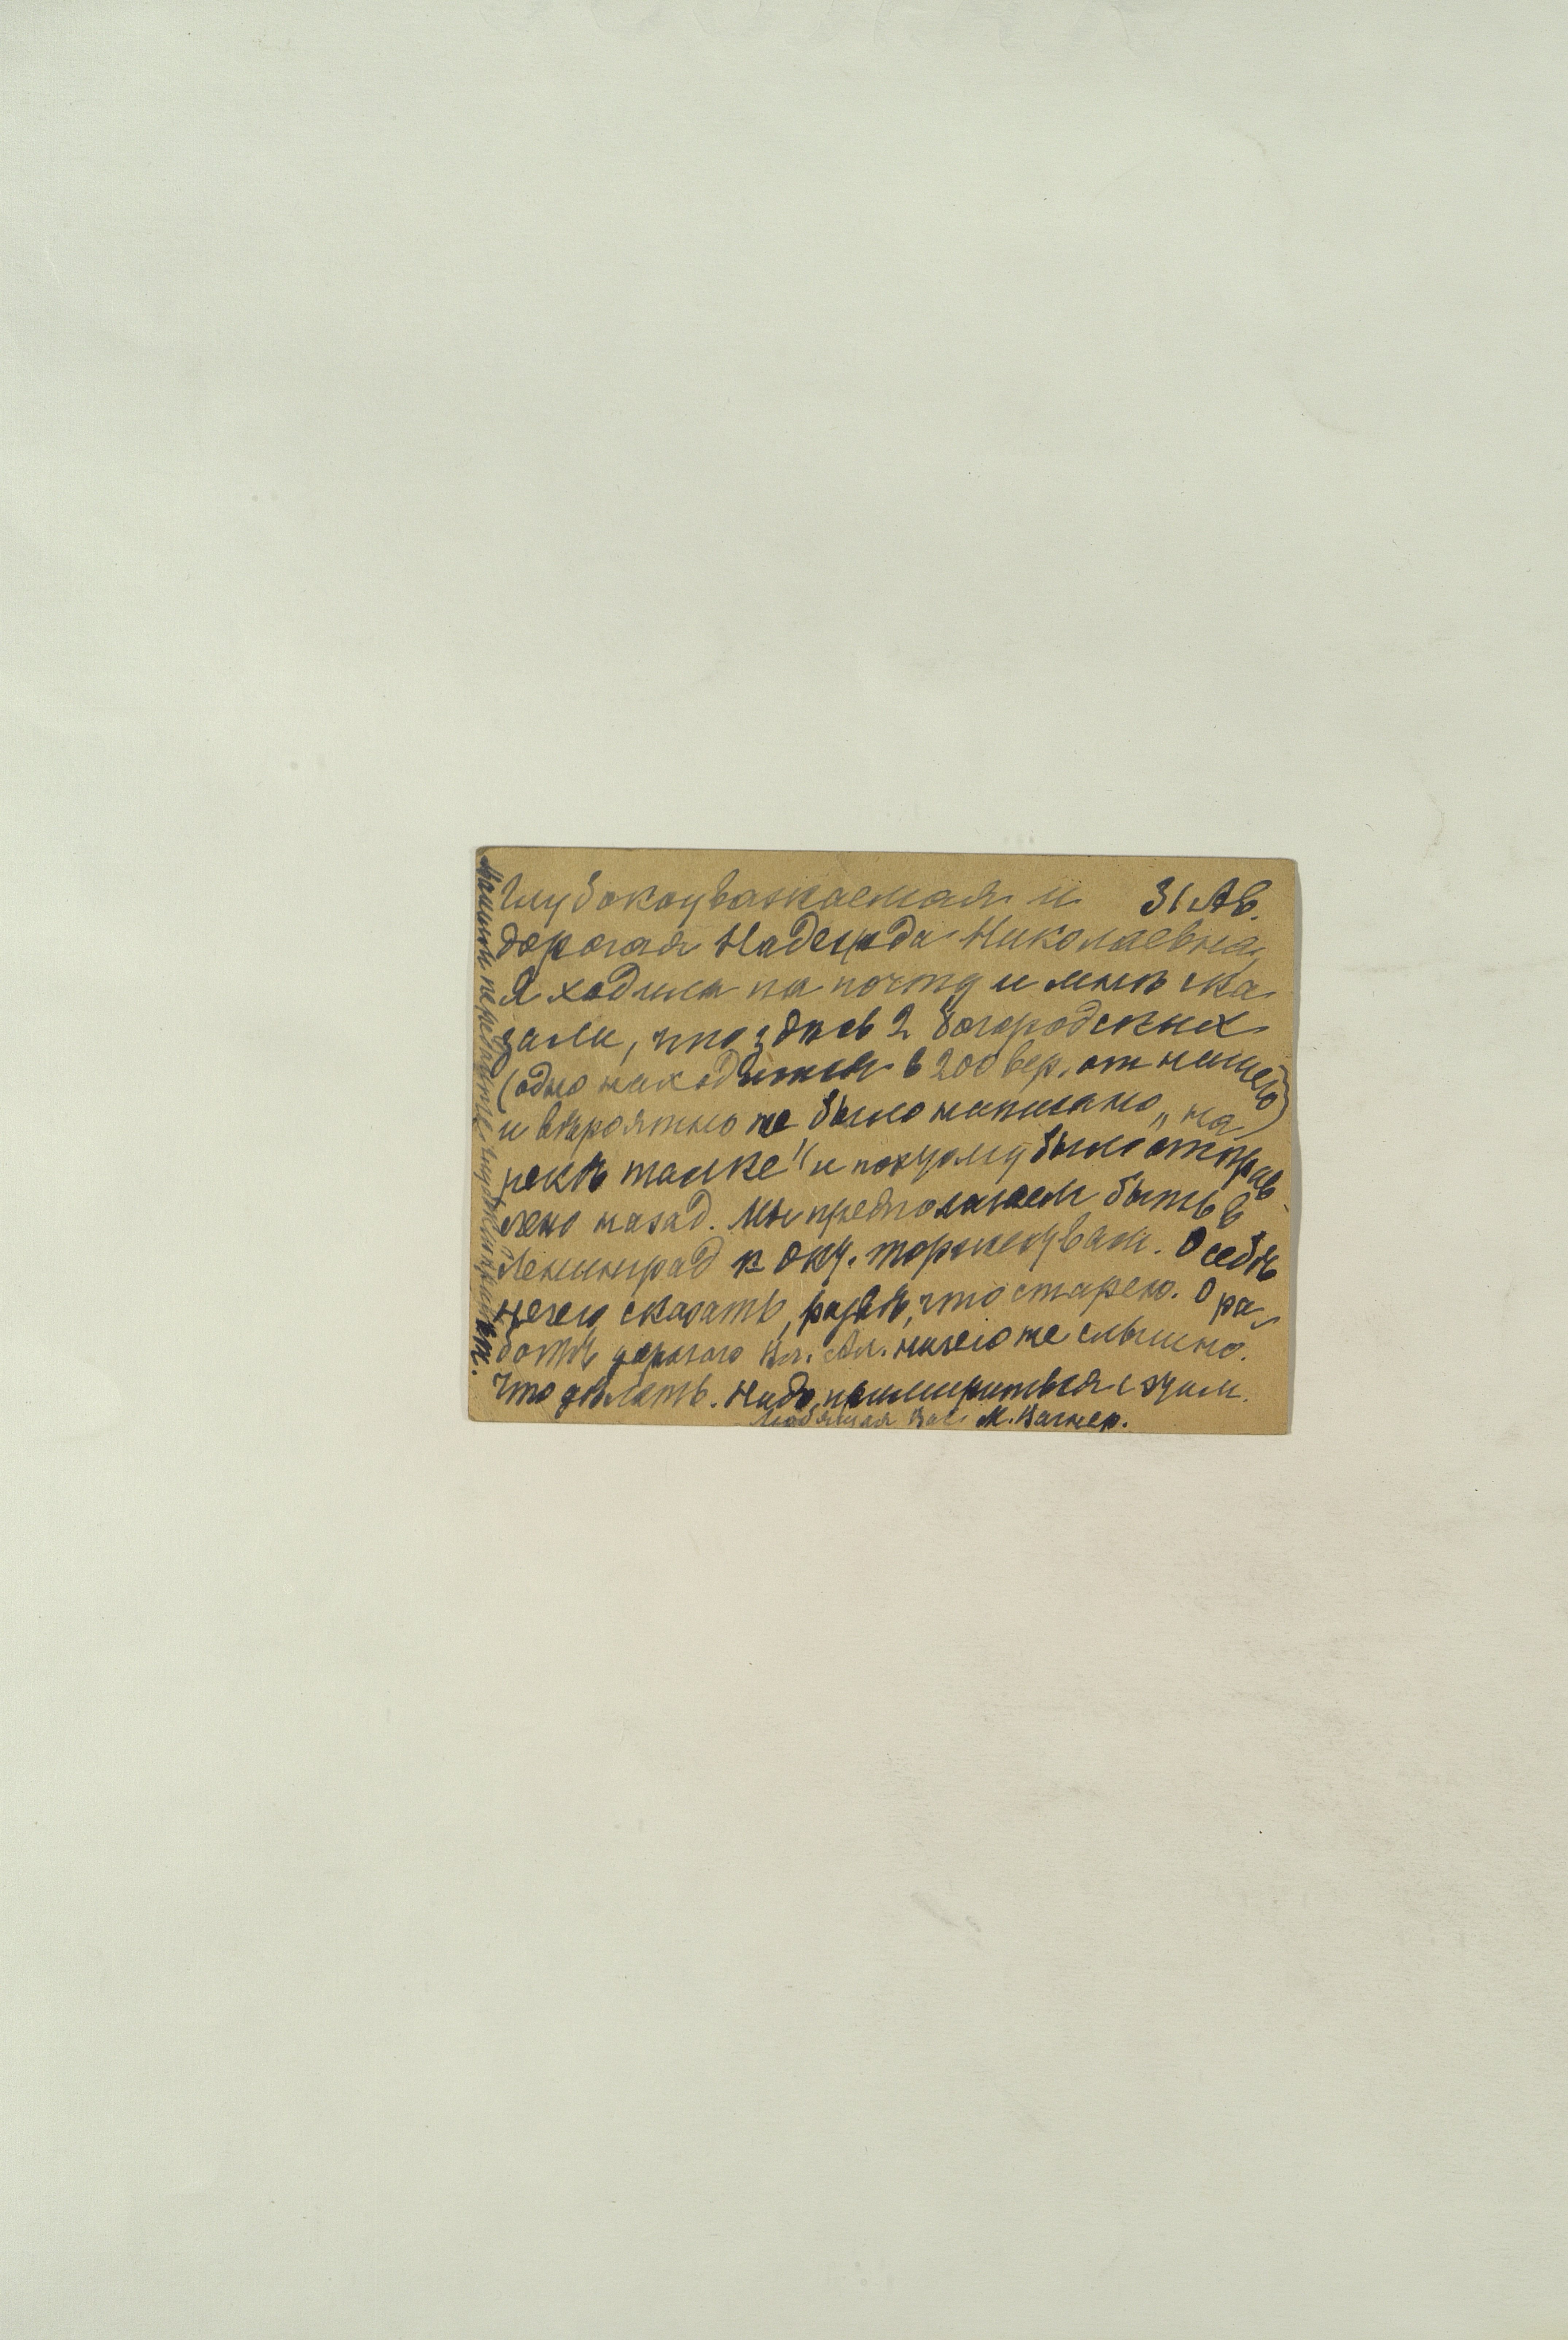 Глубокоуважаемая и 31 Ав.
дорогая Надежда Николаевна,
Я ходила на почту и мнѣ ска
зали, что здѣсь 2 богородских
(одно находится в 200 вер. от нашего)
и вѣроятно не было написано „на
рекѣ
и поэтому было отправ
лено назад. Мы предполагаем быть в
Ленинград к Окт. торжествам. О себѣ
нечего сказать, развѣ, что старею. О ра
ботѣ дорогого Вл. Ал. ничего не слышно.
Что дѣлать. Надо примириться с этим.
Любящая Вас М. Вагнер.
Вашим передайте мой привѣт.